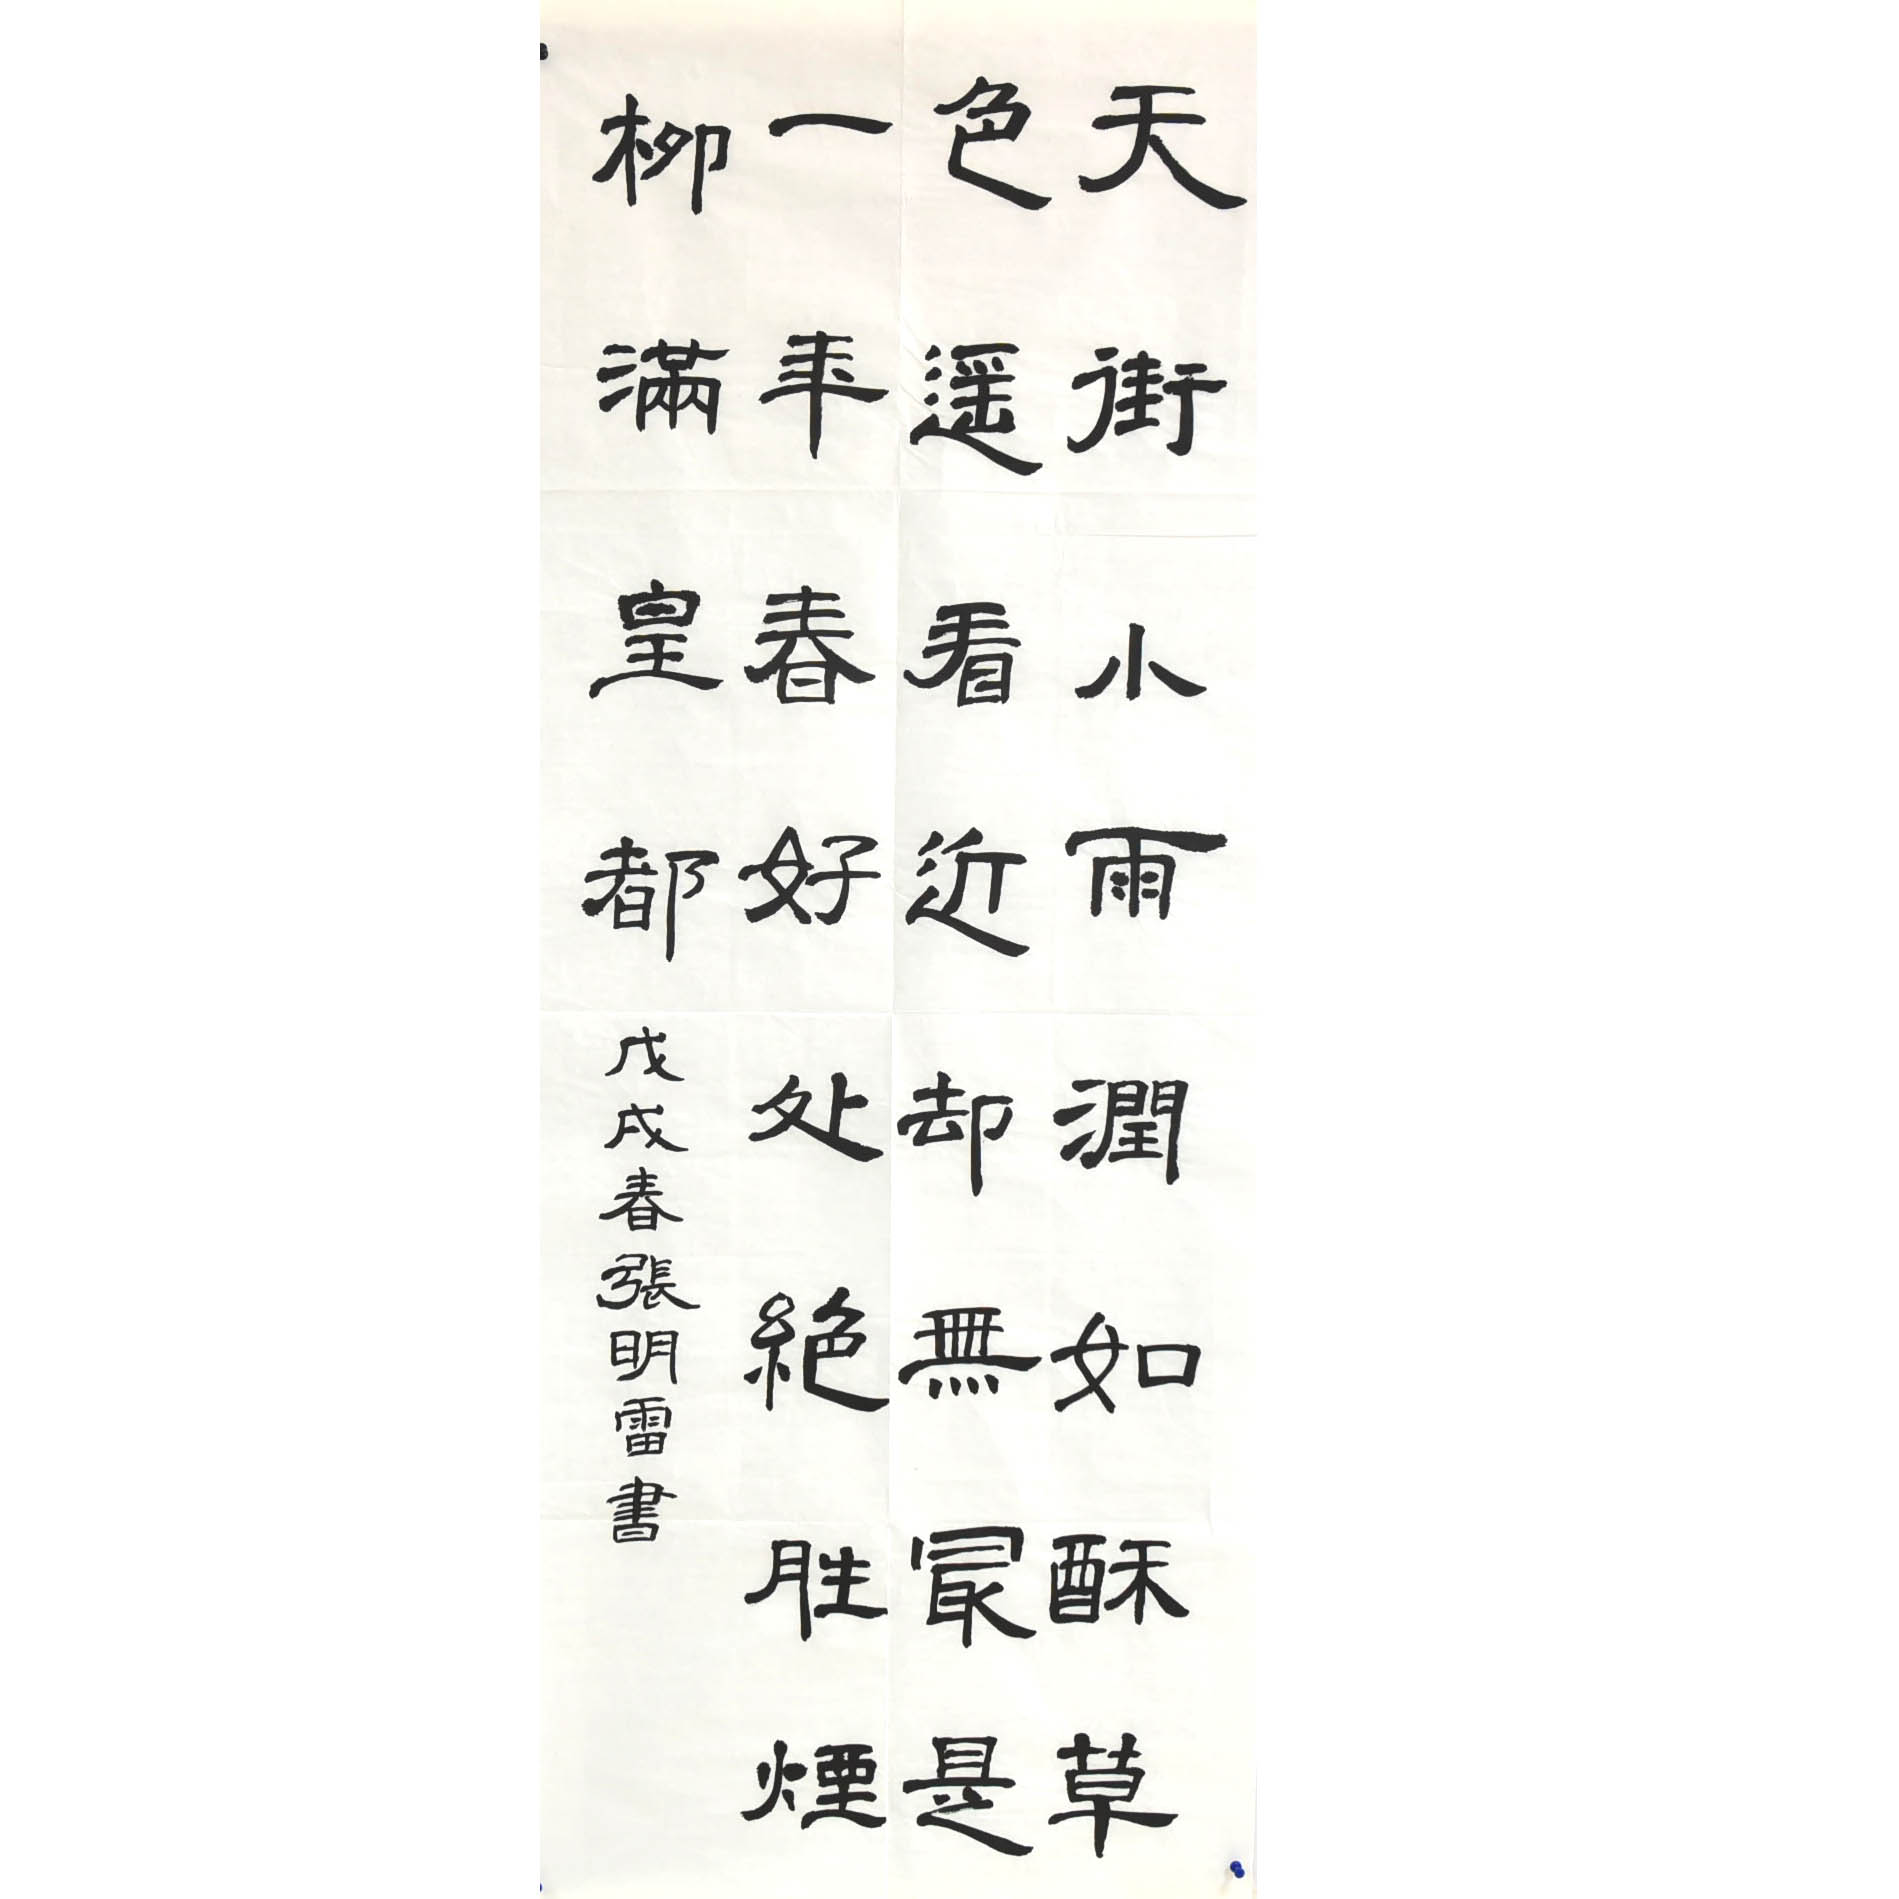 天街小雨潤如酥草
色遥看近却無冣是
一年春好处絕胜煙
柳滿皇都
戊戌春張明雷書